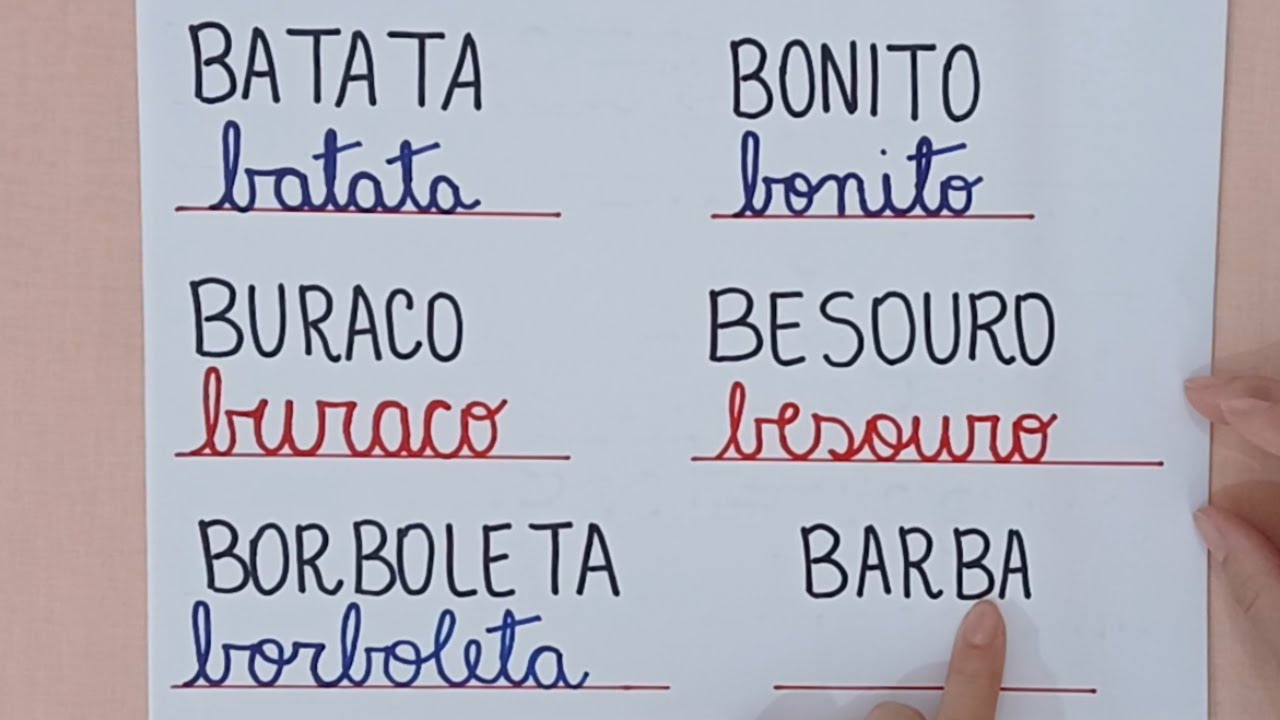 BATATA BONITO
batata bonito
BURACO BESOURO
buraco besouro
BORBOLETA BARBA
borboleta